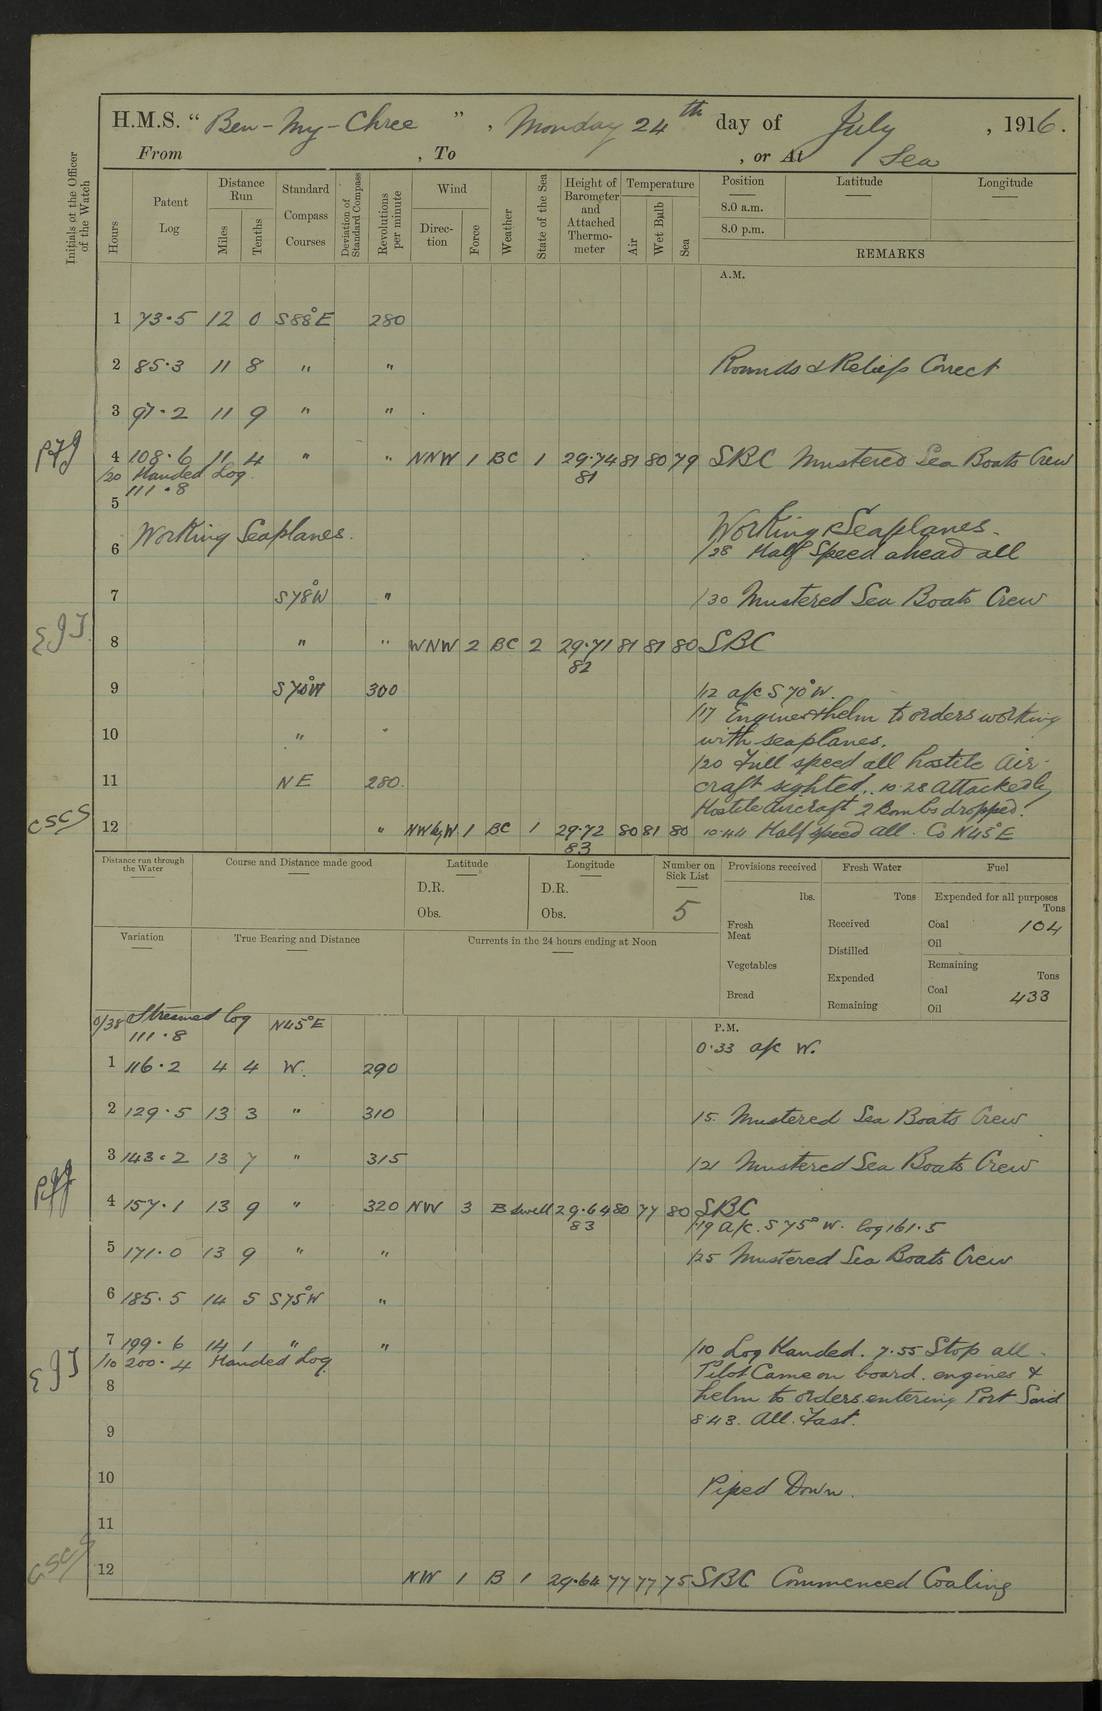 H.M.S. “ Ben-My-Chree ” , Monday 24th day of July , 1916.
From , To , or At Sea
Initials of the Officer of the Watch
Hours
Patent Log
Distance Run
Miles
Tenths
Standard Compass Courses
Deviation of Standard Compass
Revolutions per minute
Wind
Direction
Force
Weather
State of the Sea
Height of Barometer and Attached Thermometer
Temperature
Air
Wet Bulb
Sea
Position
Latitude
Longitude
8.0 a.m.
8.0 p.m.
REMARKS
A.M.
1 73.5 12 0 S88°E 280
2 85.3 11 8 " " Rounds & Reliefs Correct
3 97.2 11 9 " "
4 108.6 11 4 " " NNW 1 BC 1 29.74 81 80 79 SBC Mustered Sea Boats Crew
/20 Handed Log 81
111.8
5
Working Seaplanes. Working Seaplanes.
6 /28 Half Speed ahead all
7 S78°W " /30 Mustered Sea Boats Crew
8 " " WNW 2 BC 2 29.71 81 81 80 SBC
82
9 S70°W 300 /12 a/c S70°W.
/17 Engines & helm to orders working
10 " " with seaplanes.
/20 Full speed all hostile air-
11 NE 280. craft sighted.. 10.28 attacked by
Hostile aircraft 2 Bombs dropped.
CSCS 12 " NWbyW 1 BC 1 29.72 80 81 80 10.44 Half speed all. Co N45°E
83
Distance run through the Water
Course and Distance made good
Latitude
D.R.
Obs.
Longitude
D.R.
Obs.
Number on Sick List
5
Provisions received
lbs.
Fresh Meat
Vegetables
Bread
Fresh Water
Tons
Received
Distilled
Expended
Remaining
Fuel
Expended for all purposes
Tons
Coal 104
Oil
Remaining
Tons
Coal 433
Oil
Variation
True Bearing and Distance
Currents in the 24 hours ending at Noon
0/38 Streamed log N45°E P.M.
111.8 0.33 a/c W.
1 116.2 4 4 W. 290
2 129.5 13 3 " 310 15. Mustered Sea Boats Crew
3 143.2 13 7 " 315 /21 Mustered Sea Boats Crew
4 157.1 13 9 " 320 NW 3 B swell 29.64 80 77 80 SBC
83 /19 a/c. S75°W. log 161.5
5 171.0 13 9 " " /25 Mustered Sea Boats Crew
6 185.5 14 5 S75°W "
7 199.6 14 1 " " /10 Log Handed. 7.55 Stop all.
/10 200.4 Handed Log Pilot Came on board. engines &
8 helm to orders entering Port Said
8.43. All. Fast.
9
10 Piped Down.
11
CSCS 12 NW 1 B 1 29.64 77 77 75 SBC Commenced Coaling